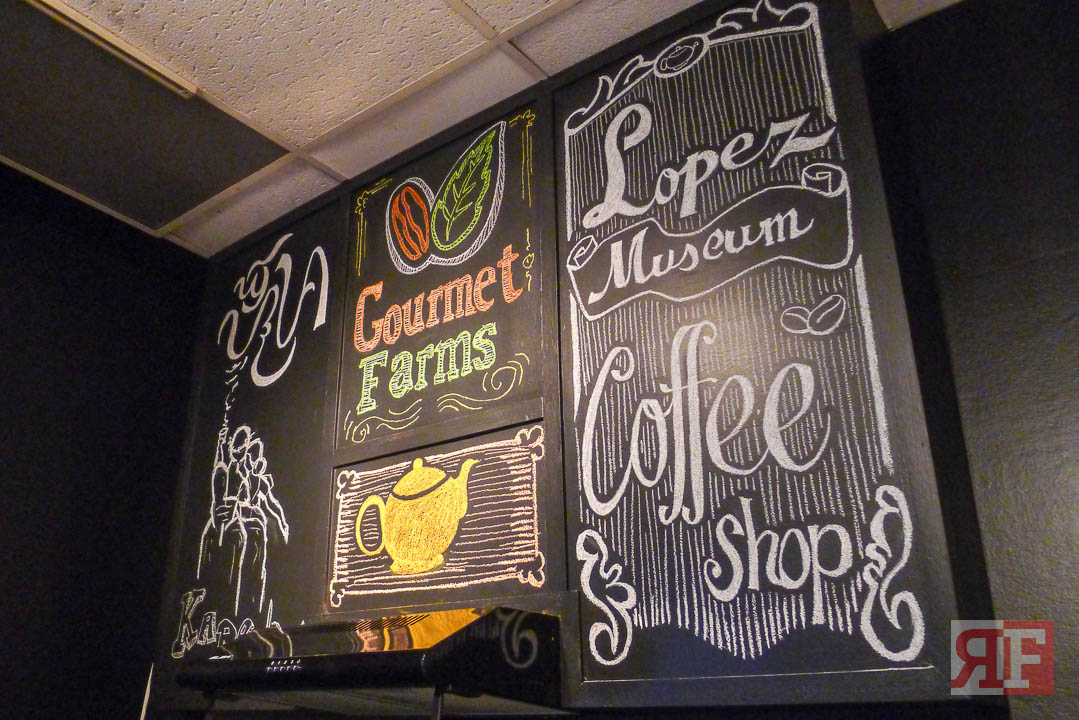 Gourmet
Farms
Lopez
Museum
Coffee
shop
RF